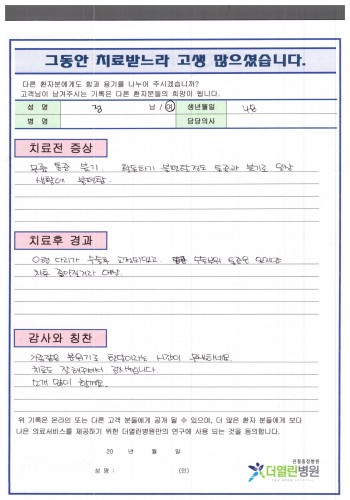 그동안 치료받느라 고생 많으셨습니다.
다른 환자분에게도 힘과 용기를 나누어 주시겠습니까?
고객님이 남겨주시는 기록은 다른 환자분들의 희망이 됩니다.
성 명 정 남 / 여 생년월일
병 명 담당의사
치료전 증상
무릎 통증 붓기. 활동하기 불편할정도 통증과 붓기로 일상
생활이 불편함.
치료후 경과
O형 다리가 수술로 교정되었고. 수술부위 통증은 있지만
치료 좋아질거라 예상.
감사와 칭찬
가족같은 분위기로
치료도 잘 해주셔서 감사합니다.
소개 많이 할게요.
위 기록은 온라인 또는 다른 고객 분들에게 공개 될 수 있으며, 더 많은 환자 분들에게 보다
나은 의료서비스를 제공하기 위한 더열린병원만의 연구에 사용 되는 것을 동의합니다.
20 년 월 일
성 명 : (인)
관절중점병원
더열린병원